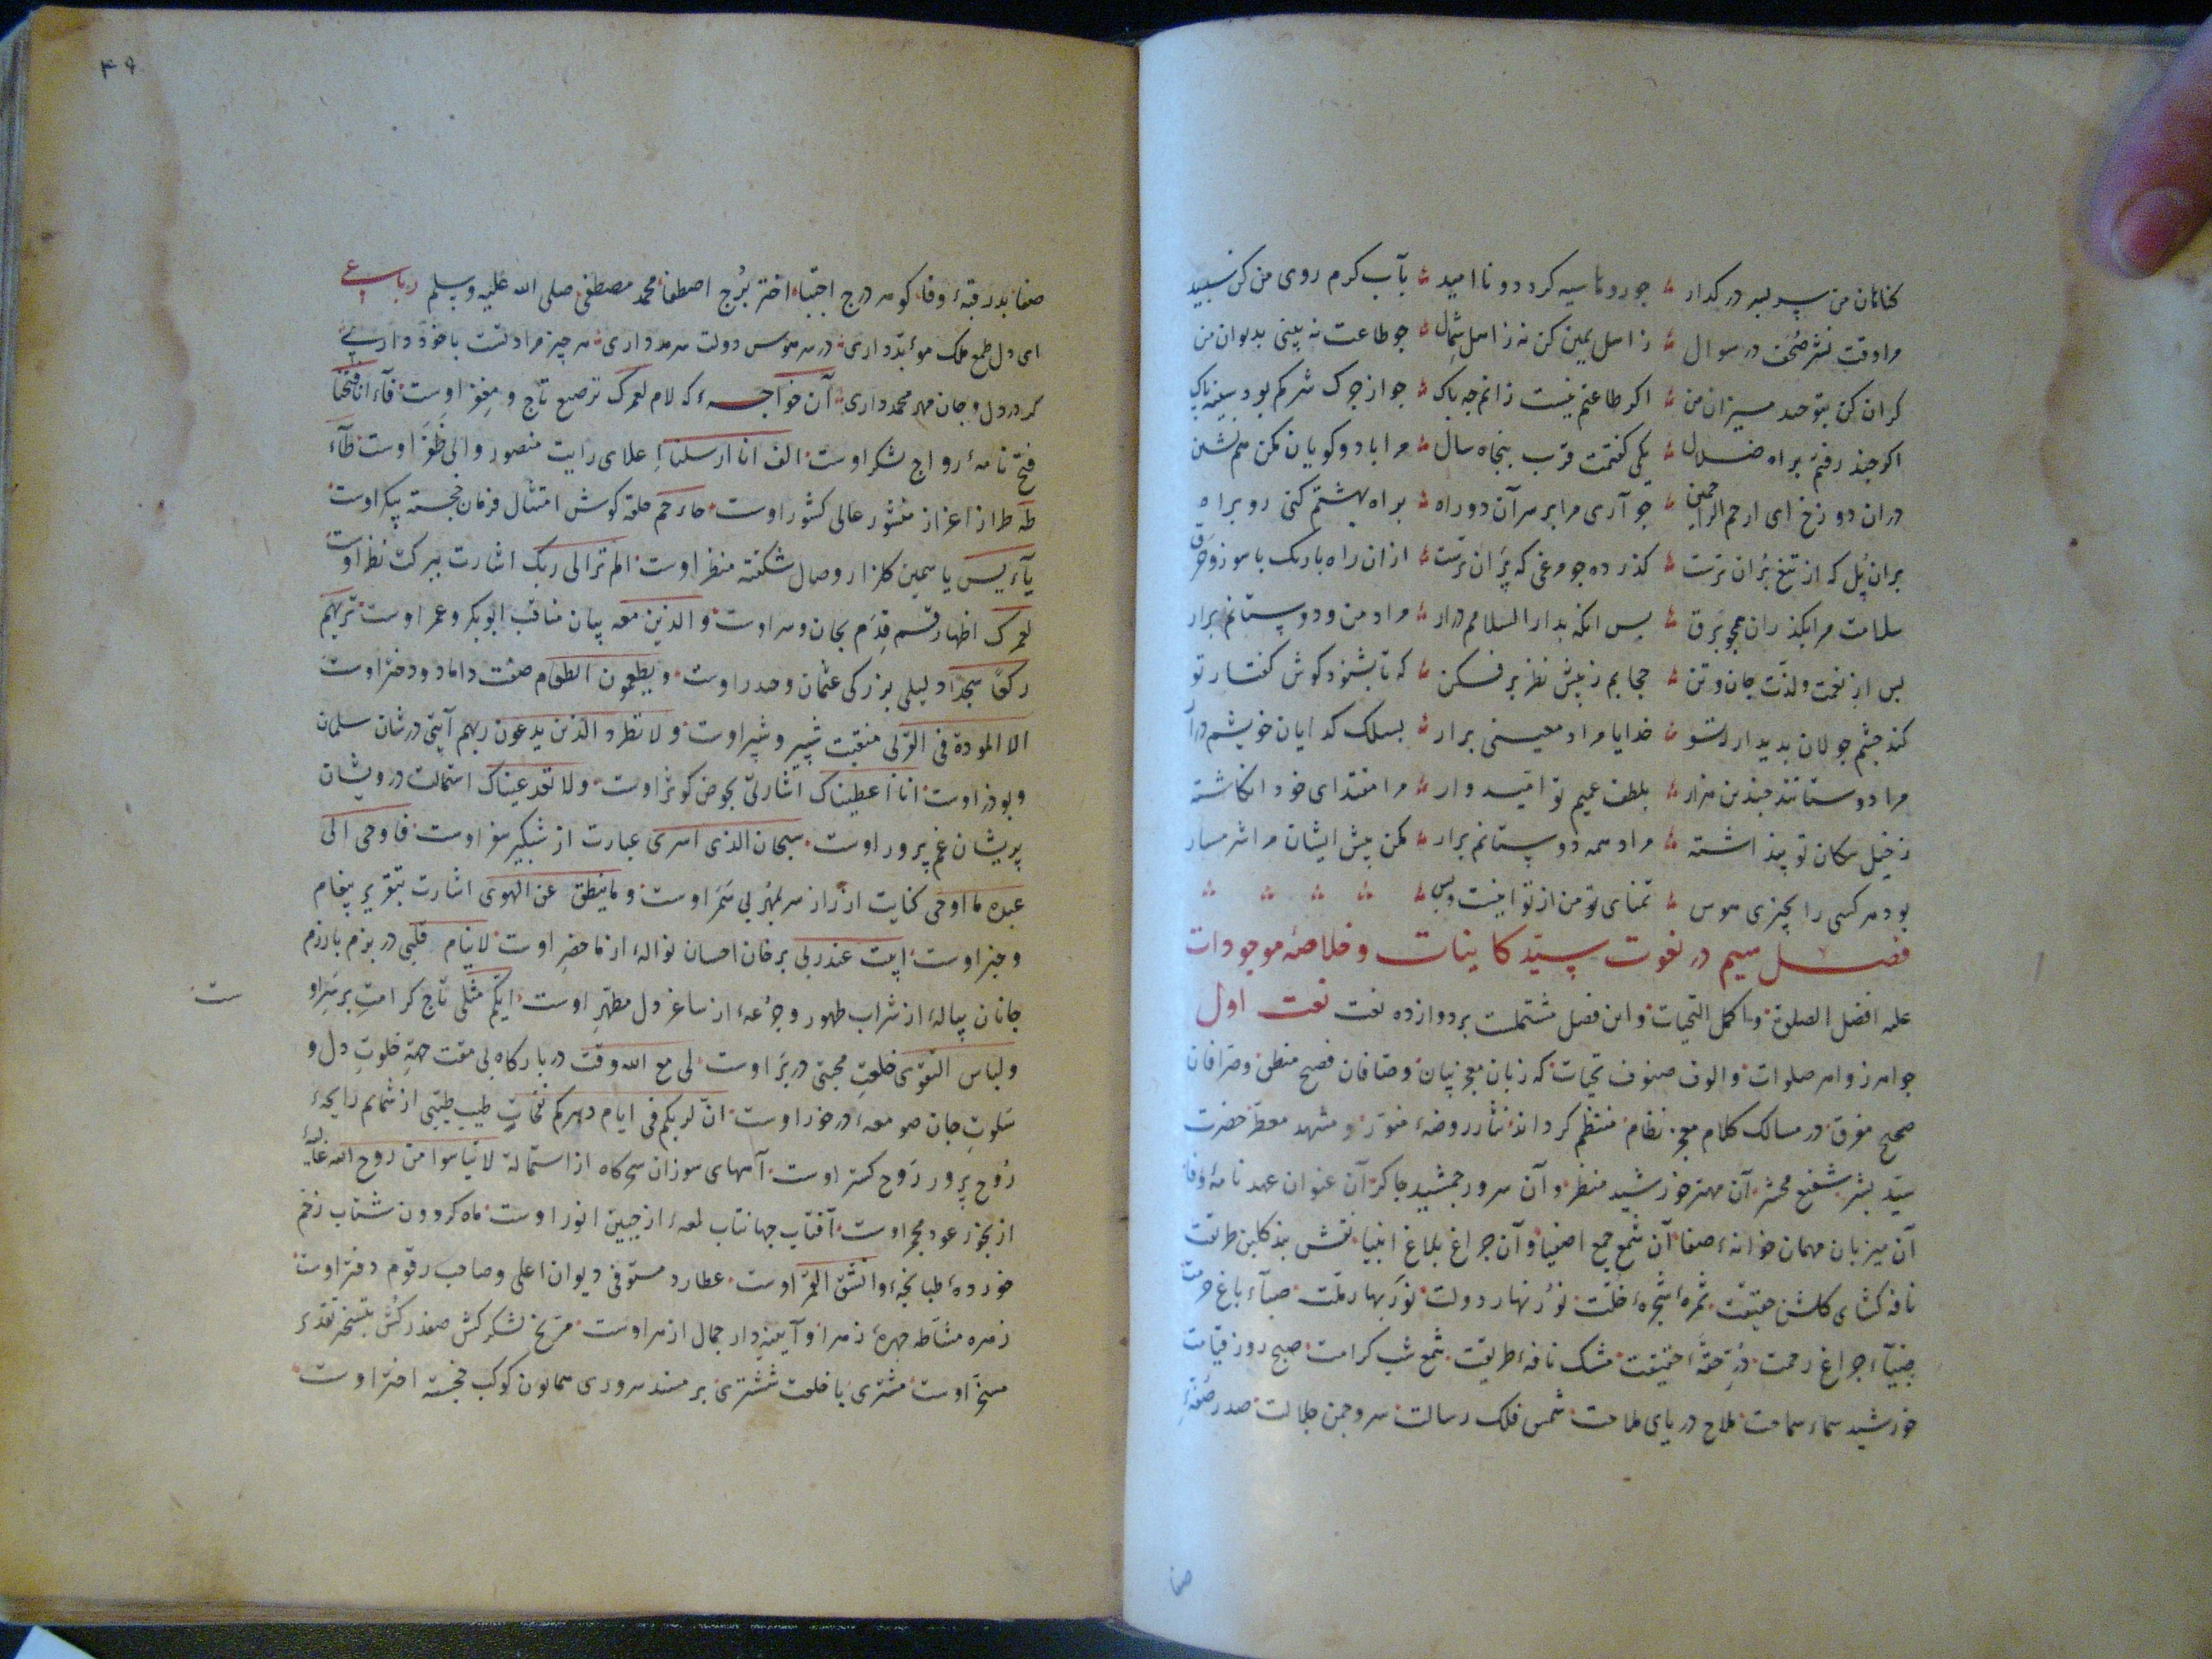 کناهان من سر بسر در گذار ؞ چو روها سیه گردد و نا امید ؞ بآب کرم روی من کن سپید
مرا وقت نشر صحف در سوال ؞ ز اهل یمین کن نه ز اهل شمال ؞ چو طاعت نه بینی بدیوان من
کران کن بتوحید میزان من ؞ اکر طاعتم نیست زانم چه باک ؞ چو از جرک شرکم بود سینه پاک
اکر چند رفتم براه ضلال ؞ یکی کفتمت قرب پنجاه سال ؞ مرا با دو کویان مکن هم نشین
دران دوزخ ای ارحم الراحمین ؞ چو آری مرا بر سر آن دو راه ؞ براه بهشتم کنی رو براه
بران پُل که از تیغ بُران ترست ؞ کذر ده چو مرغی که پرّان ترست ؞ ازان راه باریک با سوز و حرق
سلامت مرا بکذران همچو برق ؞ پس انکه بدار السلامم درار ؞ مراد من و دوستانم برار
پس از نعمت و لذّت جان و تن ؞ حجابم ز پیش نظر بر فکن ؞ که تا بشنود کوش کفتار تو
کند چشم جولان بدیدار تو ؞ خدایا مراد معینی برار ؞ بسلک کدایان خویشم درآر
مرا دوستانند چندین هزار ؞ بلطف عمیم تو امیدوار ؞ مرا مقتدای خود انکاشته
ز خیل سکان تو پنداشته ؞ مراد همه دوستانم برار ؞ مکن پیش ایشان مرا شرمسار
بود هر کسی را بچیزی هوس ؞ تمنای تو من از تو اینست و بس ؞ ؞ ؞ ؞ ؞
فصل سیم در نعوت سیّد کاینات و خلاصهٔ موجودات
علیه افضل الصلوة و اکمل التحیات و این فصل مشتملست بر دوازده نعت نعت اول
جواهر زواهر صلوات و الوف صنوف تحیات که زبان معجز بیان وصّافان فصیح منطق و صرّافان
صحیح مفرق در مسالک کلام معجز نظام منتظم کردانند نثار روضهٔ منوّر و مشهد معطّر حضرت
سیّد بشر شفیع محشر آن مهتر خورشید منظر و آن سرور جمشید چاکر آن عنوان عهد نامهٔ وفا
آن میزبان مهمان خوانهٔ صفا آن شمع جمع اصفیا و آن چراغ بلاغ انبیا نقش بند کلبن طریقت
نافه کشای کلشن حقیقت ثمرهٔ شجرهٔ خلّت نور نهار دولت نَوْر بهار ملّت صباء باغ حرمت
ضیاء چراغ رحمت دُرّ حقّهٔ حقیقت مشک نافهٔ طریقت شمع شب کرامت صبح روز قیامت
خورشید سماء سماحت ملاح دریای ملاحت شمس فلک رسالت سرو چمن جلالت صدر صُفّهٔ
صفا
۴۹
صفا بدرقهٔ وفا کوهر درج اجتبا اختر بُرج اصطفا محمد مصطفی صلی الله علیه وسلم رباعی
ای دل طمع ملک مؤبّد داری ؞ در سر هوس دولت سرمد داری ؞ هر چیز مرادتست با خود داری
کر در دل و جان مهر محمد داری ؞ آن خواجهٔ که لام لعمرک ترصیع تاج و مغفر اوست فآء انا فتحنا
فتح نامهٔ رواج لشکر اوست الف انا ارسلنا اعلای رایت منصور والی ظفر اوست طآء
طه طراز اعزاز منشور عالی کشور اوست حاء حم حلقه کوش امتثال فرمان خجسته پیکر اوست
یآء یس یاسمین کلزار وصال شکفته منظر اوست الم تر الی ربک اشارت ببرکت نظر اوست
لعمرک اظهار قسم قِدَم بجان و سر اوست و الذین معه بیان مناقب ابوبکر و عمر اوست تریهم
رکعًا سجدًا دلیلی بزرکی عثمان و حیدر اوست و یطعمون الطعام صفت داماد و دختر اوست
الا المودة فی القربی منقبت شبیر و شبر اوست و لا تطرد الذین یدعون ربهم آیتی در شان سلمان
و بوذر اوست انا اعطیناک اشارتی بحوض کوثر اوست و لا تعد عیناک استمالت درویشان
پریشان غم پرور اوست سبحان الذی اسری عبارت از شبکیر سفر اوست فاوحی الی
عبده ما اوحی کنایت از راز سر بمُهر بی سَمَر اوست و ما ینطق عن الهوی اشارت بتقریر پیغام
و خبر اوست ابیت عند ربی بر خان احسان نوالهٔ از ما حضر اوست لا ینام قلبی در بزم با رزم
جانان پیالهٔ از شراب طهور و جرعهٔ از ساغر دل مطهّر اوست ایکم مثلی تاج کرامت بر سَر او
ست
و لباس التقوی خلعت مجتبی در بَر اوست لی مع الله وقت دربار کاه لی مقت حمهٔ خلوت دل و
سَلوت جان صومعهٔ در خور اوست انّ لربکم فی ایام دهرکم نفحات طیب طیّبی از شمایم رایحهٔ
رُوح پرور رَوح کستر اوست آههای سوزان سحرکاه از استمالة لا تیأسوا من روح الله
از بخور عود مجمر اوست آفتاب جهانتاب لمعهٔ از جبین انور اوست ماه کردون شتاب زخم
خوردهٔ طبانچهٔ وانشق القمر اوست عطارد مستوفی دیوان اعلی و صاحب رقوم دفتر اوست
زهره مشّاطه چهرهٔ زهرا و آیینه دار جمال ازهر اوست مرّیخ لشکر کش صفدر کُش بتسخیر تقدیر
مسخّر اوست مشتری با خلعت ششتری بر مسند سروری همایون کوکب خجسته اختر اوست